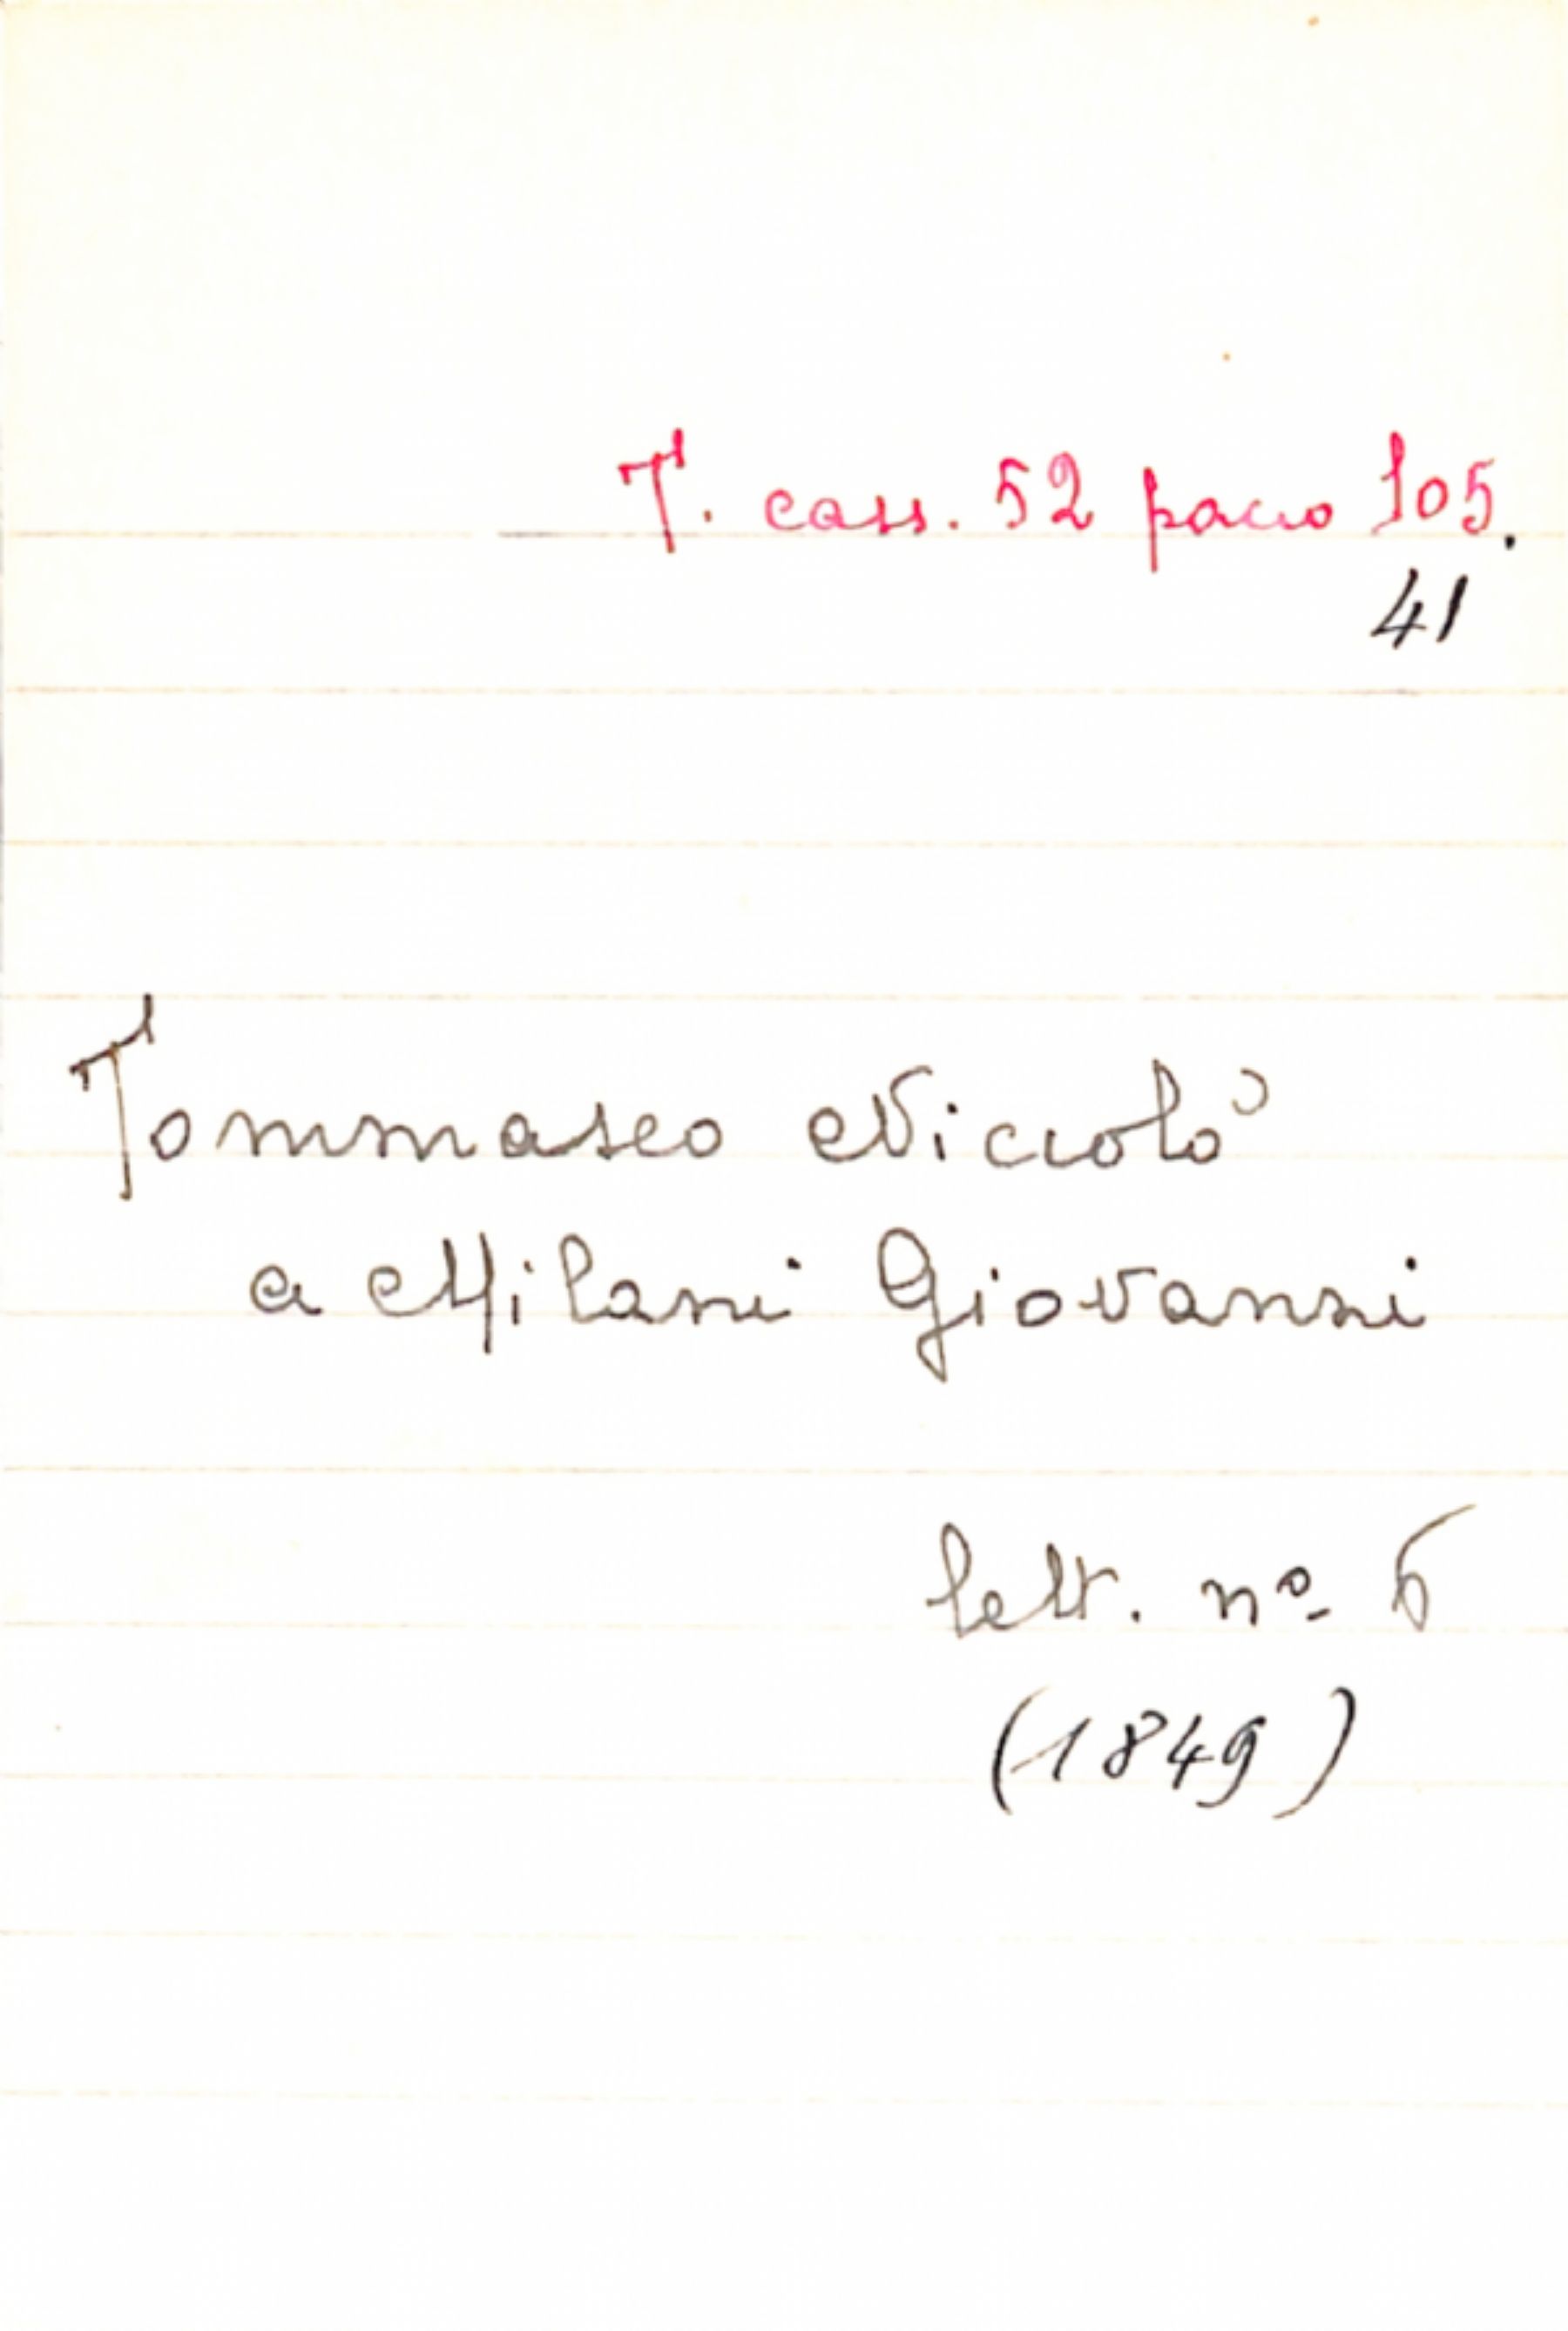 T. cass. 52 pacco 105.
41
Tommaseo Niccolò
a Milani Giovanni
lett. nº 6
(1849)